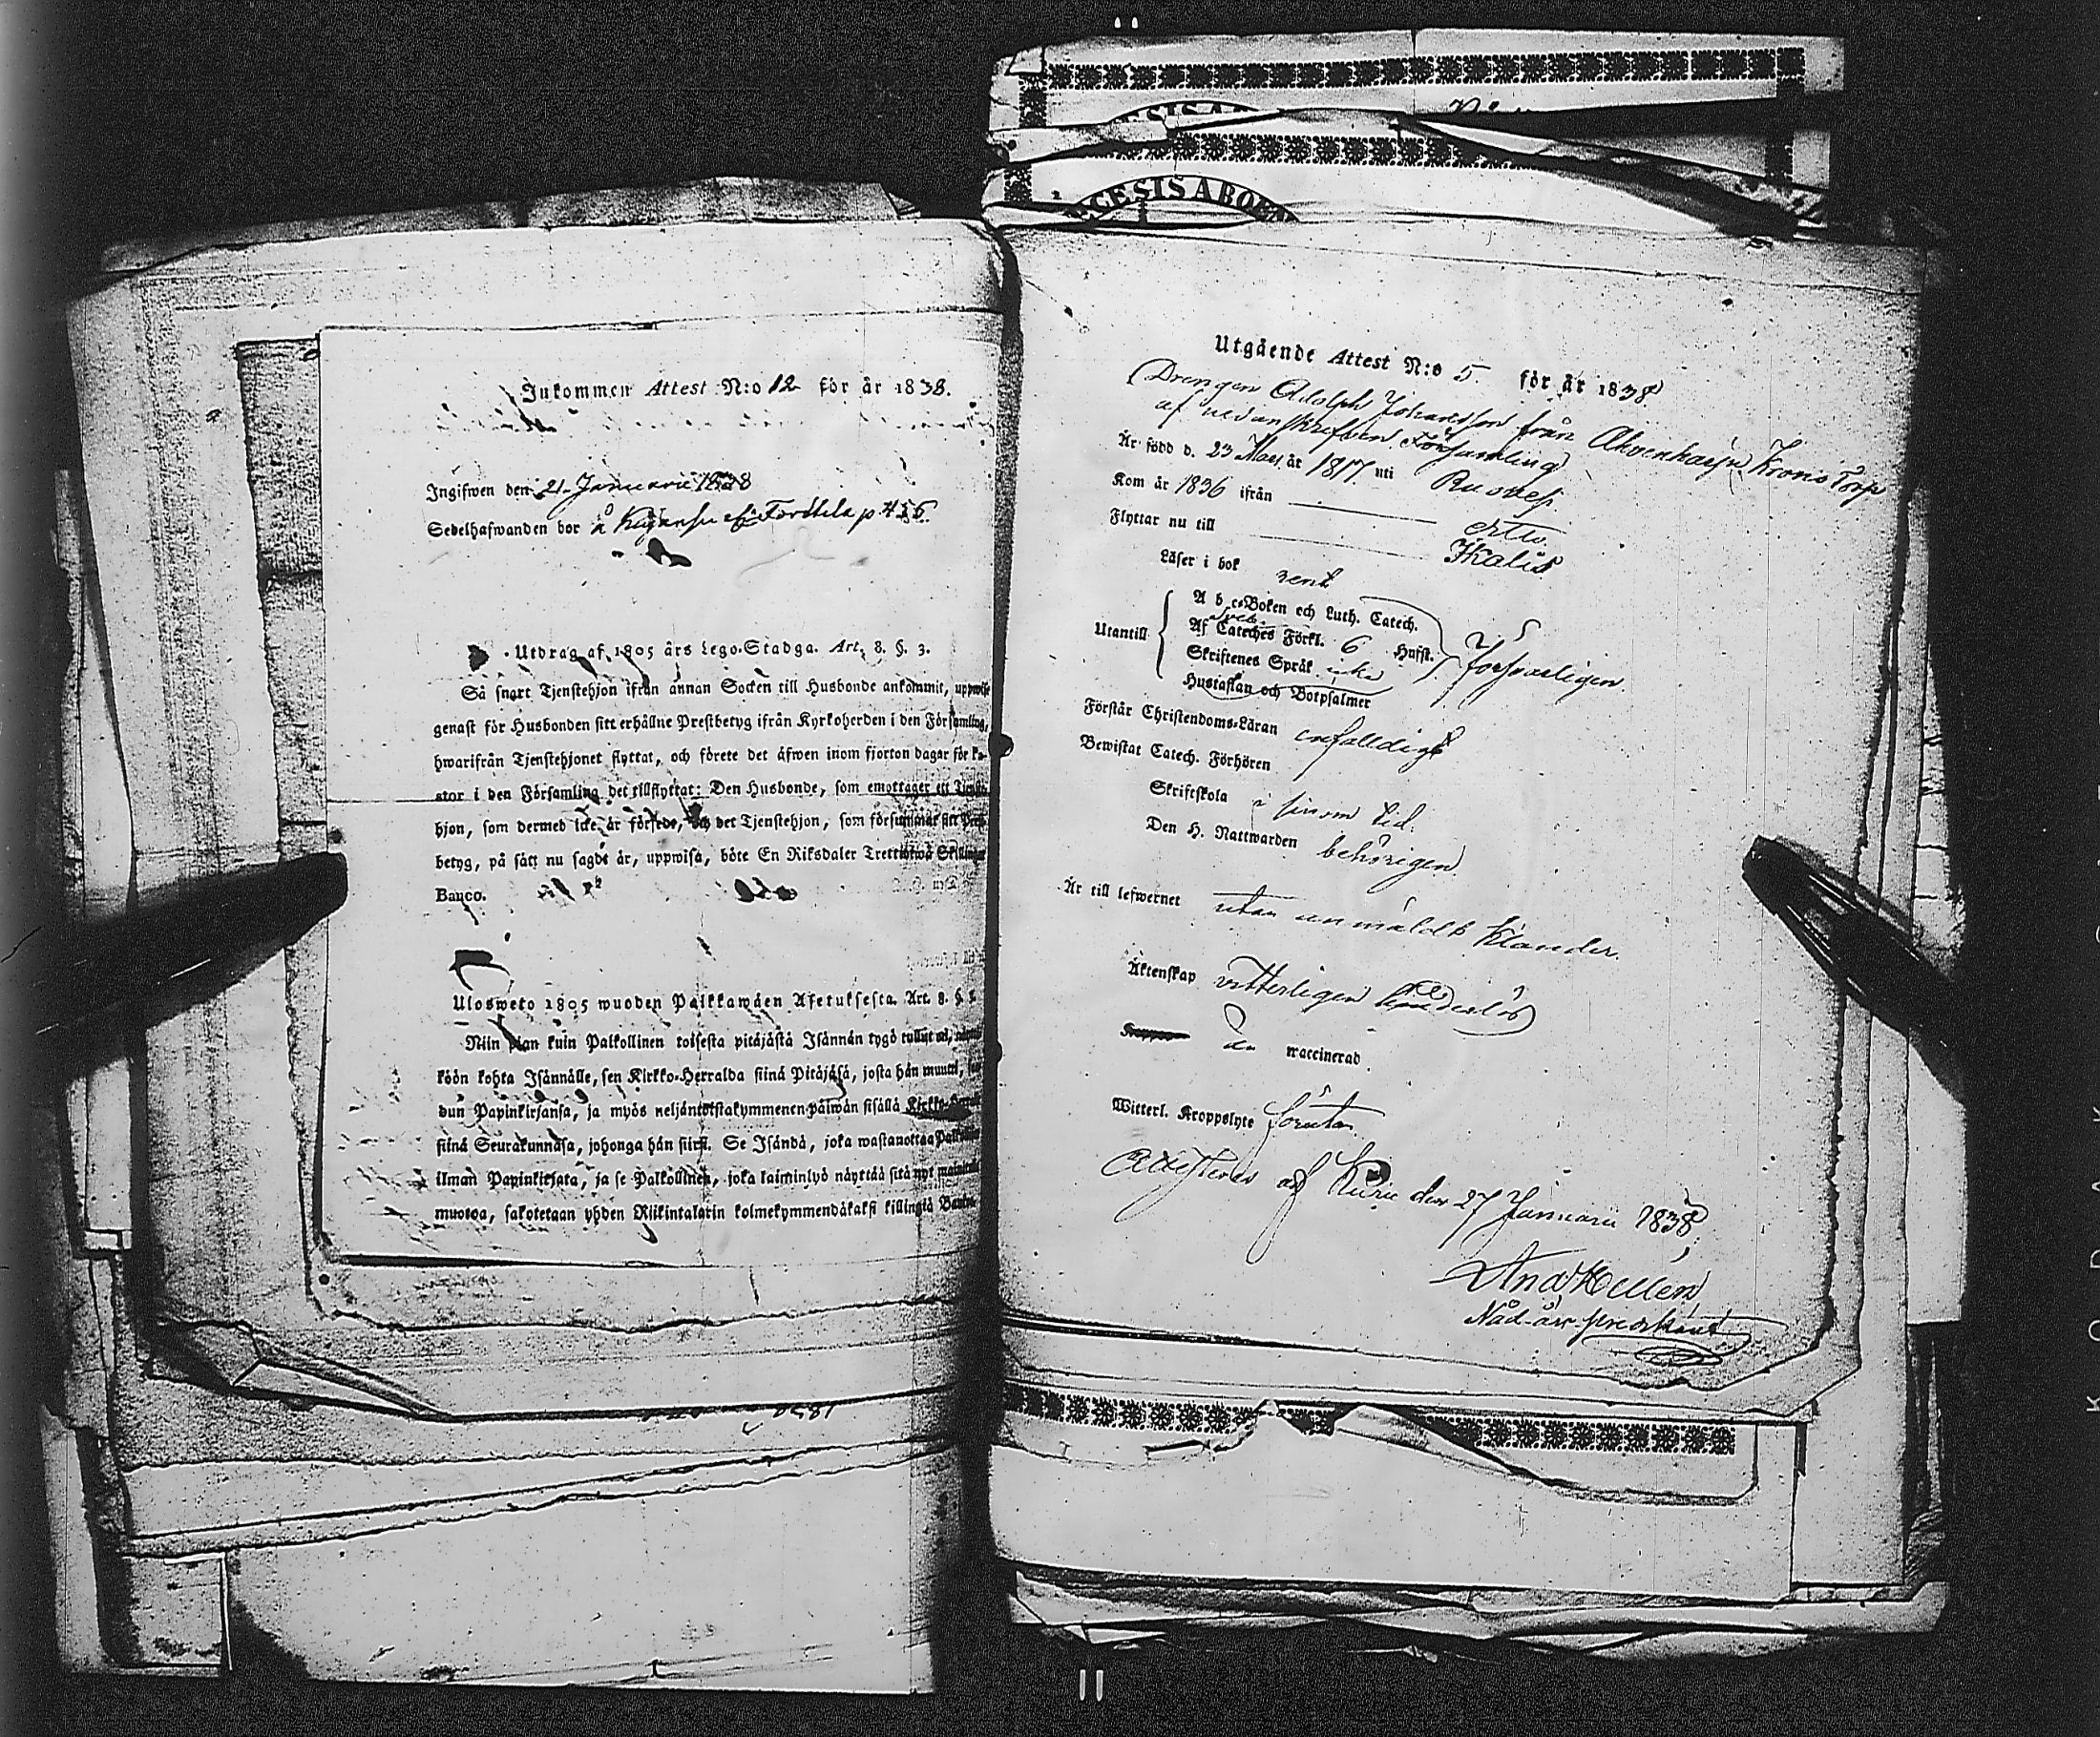 Inkommen Attest N:o 12 för år 1838.
Ingifwen den 21 Januarii 1838
Sedelhafwanden bor å p. 456
Utdrag af 1805 års Lego-Stadga. Art. 8. §. 3.
Så snart Tjenstehjon ifrån annan Socken till Husbonde ankommit, uppwise
genast för Husbonden sitt erhållne Prestbetyg ifrån Kyrkoherden i den Församling,
hwarifrån Tjenstehjonet flyttat, och förete det äfwen inom fjorton dagar för Pa-
stor i den Församling det tillflyttat: Den Husbonde, som emottager ett Tjenste-
hjon, som dermed icke är försedt, och det Tjenstehjon, som försummar sitt Prest-
betyg, på sätt nu sagdt är, uppwisa, böte En Riksdaler Trettiotwå Skillingar
Banco.
Ulosweto 1805 wuoden Palkkawäen Asetuksesta. Art. 8. §. 3.
Niin pian kuin Palkollinen toisesta pitäjästä Isännän tygö tullut on,
köön kohta Isännälle, sen Kirkko-Herralda siinä Pitäjäsä, josta hän muutti,
dun Papinkirjansa, ja myös neljäntoistakymmenen päiwän sisällä Kirkko-Herralle
siinä Seurakunnasa, johonga hän siirsi. Se Isändä, joka wastanottaa Palkollisen
ilman Papinkirjata, ja se Palkollinen, joka laiminlyö näyttää sitä nyt mainitulla
muotoa, sakotetaan yhden Riikintalarin kolmekymmendäkaksi killingiä Banko
DECESIS ABOEN
Utgående Attest N:o 5. för år 1838
Drengen Adolph Johansson från Ahvenharju Krono Torp
af nedanskrefven Församling
Är född d. 23 Maj år 1817 uti Ruovesi
Kom år 1836 ifrån
Flyttar nu till Ikalis
Läser i bok rent
Utantill
A b c-Boken och Luth. Catech.
Af Cateches Förkl. 6 Hufst.
Skriftenes Språk icke
Hustaflan och Botpsalmer
försvarligen.
Förstår Christendoms-Läran enfaldigt
Bewistat Catech. Förhören
Skriftskola i sinom tid.
Den H. Nattwarden behörigen
Är till lefwernet utan anmäldt klander.
Äktenskap vitterligen hinderlös
är waccinerad
Witterl. Kroppslyte förutan
Attesteras af Kuru den 27 Januarii 1838
And Hellen
Nåd-års predikant
KODAK